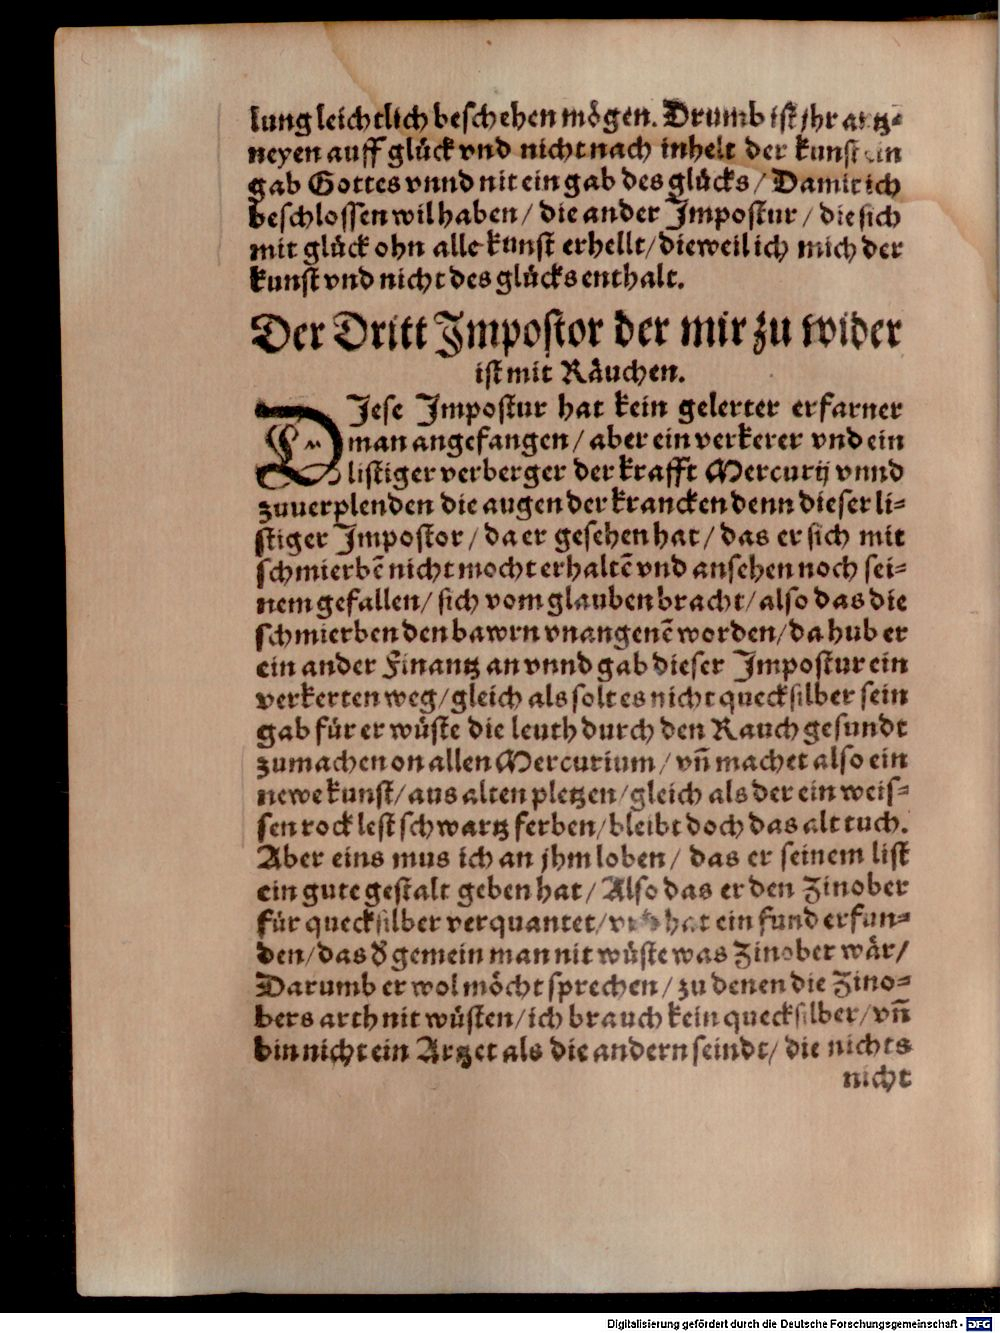 lung leichtlich beschehen mögen. Drumb ist jhr artz-
neyen auff glück vnd nicht nach inhelt der kunst ein
gab Gottes vnnd nit ein gab des glücks / Damit ich
beschlossen wil haben / die ander Impostur / die sich
mit glück ohn alle kunst erhellt / dieweil ich mich der
kunst vnd nicht des glücks enthalt.
Der Dritt Impostor der mir zu wider
ist mit Räuchen.
DIese Impostur hat kein gelerter erfarner
man angefangen / aber ein verkerer vnd ein
listiger verberger der krafft Mercurij vnnd
zuuerplenden die augen der krancken denn dieser li-
stiger Impostor / da er gesehen hat / das er sich mit
schmierbē nicht mocht erhaltē vnd ansehen noch sei-
nem gefallen / sich vom glauben bracht / also das die
schmierben den bawrn vnangenē worden / da hub er
ein ander Finantz an vnnd gab dieser Impostur ein
verkerten weg / gleich als solt es nicht quecksilber sein
gab für er wüste die leuth durch den Rauch gesundt
zumachen on allen Mercurium / vñ machet also ein
newe kunst / aus alten pletzen / gleich als der ein weis-
sen rock lest schwartz ferben / bleibt doch das alt tuch.
Aber eins mus ich an jhm loben / das er seinem list
ein gute gestalt geben hat / Also das er den Zinober
für quecksilber verquantet / hat ein fund erfun-
den / das d̕ gemein man nit wüste was Zinober wär /
Darumb er wol möcht sprechen / zu denen die Zino-
bers arth nit wüsten / ich brauch kein quecksilber / vñ
bin nicht ein Artzet als die andern seindt / die nichts
nicht
Digitalisierung gefördert durch die Deutsche Forschungsgemeinschaft - DFG